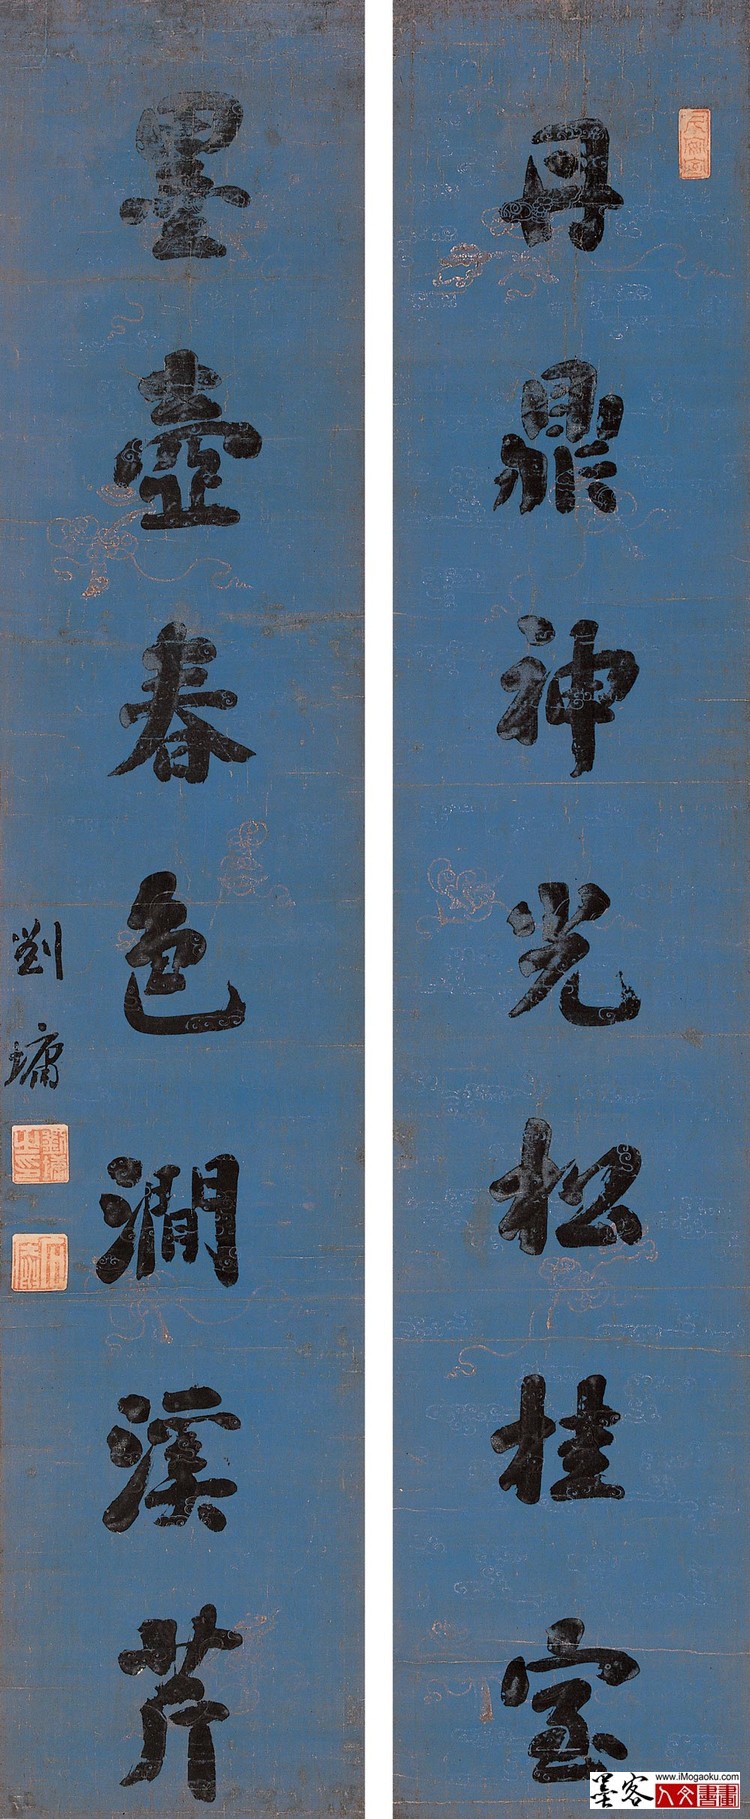 丹鼎神光松桂室
墨壺春色澗溪芹
劉墉
墨客
www.iMogaoku.com